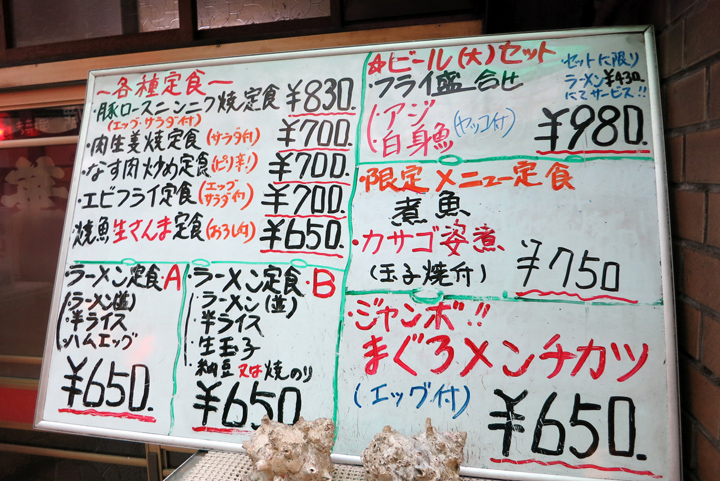 ～各種定食～
・豚ロースニンニク焼定食 ¥830.
(エッグ・サラダ付)
・肉生姜焼定食(サラダ付) ¥700.
・なす肉炒め定食(ピリ辛!) ¥700.
・エビフライ定食(エッグサラダ付) ¥700.
・焼魚生さんま定食(おろし付) ¥650.
・ラーメン定食・A
(ラーメン(並)
・半ライス
・ハムエッグ
¥650.
・ラーメン定食・B
(ラーメン(並)
・半ライス
・生玉子
・納豆又は焼のり
¥650.
☆ビール(大)セット
・フライ盛合せ
(・アジ
・白身魚(ヤッコ付)
セットに限り
ラーメン¥430.
にてサービス!!
¥980.
・限定メニュー定食
煮魚
・カサゴ姿煮
(玉子焼付)
¥750
・ジャンボ!!
まぐろメンチカツ
(エッグ付)
¥650.